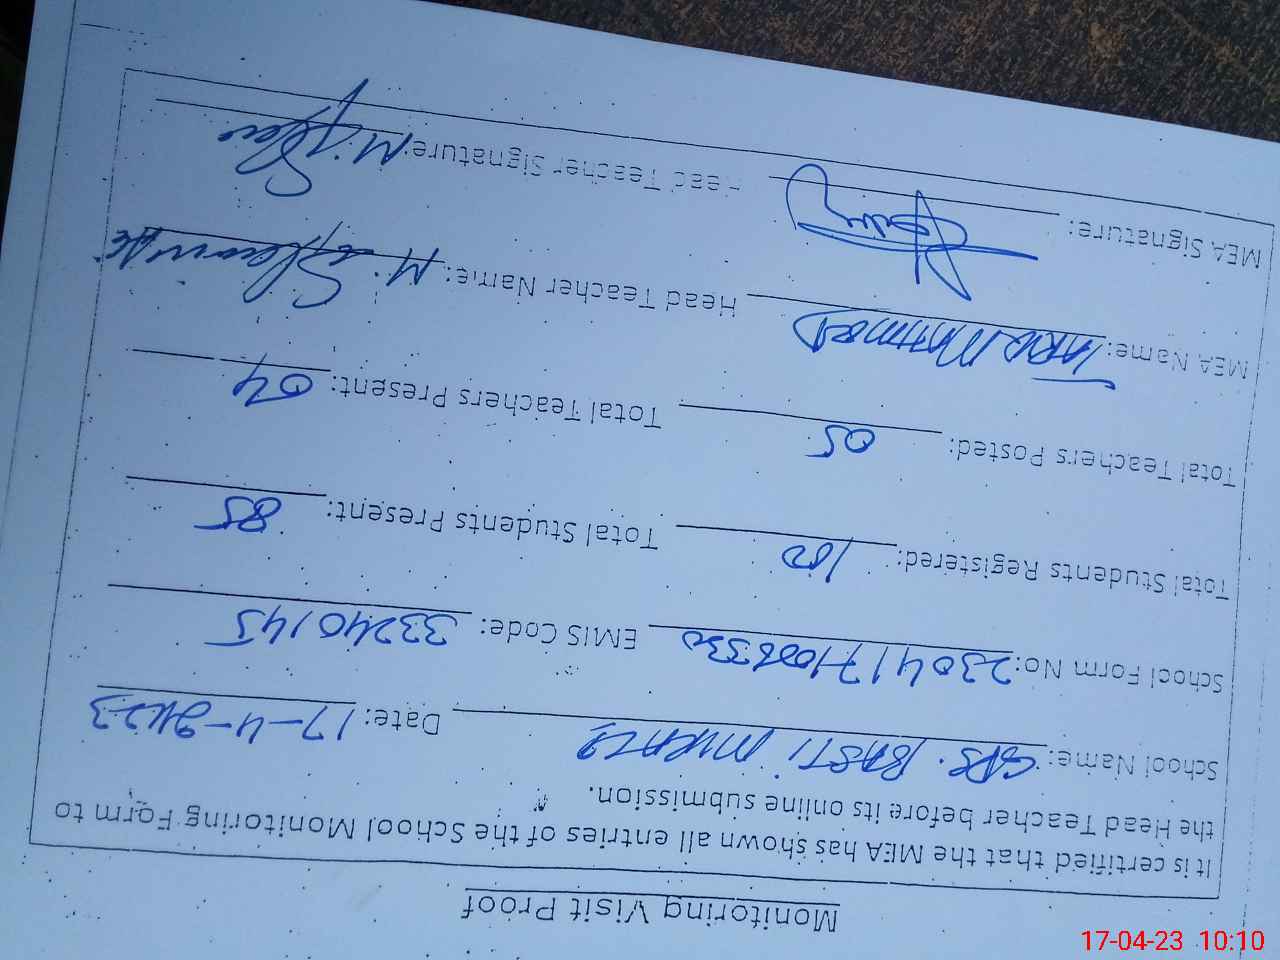 Monitoring Visit Proof
It is certified that the MEA has shown all entries of the School Monitoring Form to
the Head Teacher before its online submission.
School Name: GPS. BASTI Date: 17-4-2023
School Form No: EMIS Code: 33240145
Total Students Registered: 100 Total Students Present: 85
Total Teachers Posted: 05 Total Teachers Present: 04
MEA Name: Head Teacher Name: M.
MEA Signature: Head Teacher Signature: M.
17-04-23 10:10